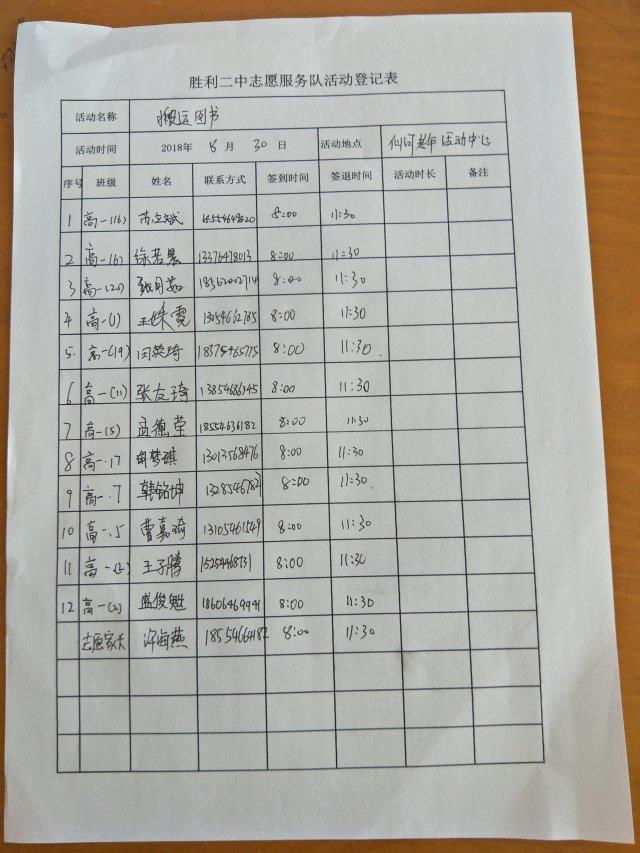 胜利二中志愿服务队活动登记表
活动名称 搬运图书
活动时间 2018年 8 月 30 日 活动地点 仙河老年活动中心
序号 班级 姓名 联系方式 签到时间 签退时间 活动时长 备注
1 高一(16) 8:00 11:30
2 高一(6) 徐若晨 13376478013 8:00 11:30
3 高一(20) 18362002714 8:00 11:30
4 高一(1) 王姝霓 13054662785 8:00 11:30
5. 高一(19) 闫英琦 18375465775 8:00 11:30
6 高一(11) 张友琦 13854686345 8:00 11:30
7 高一(5) 孟德莹 18554636182 8:00 11:30
8 高一.17 胡梦琪 13013568476 8:00 11:30
9 高一.7 韩铭坤 8:00 11:30
10 高一.5 曹嘉琦 13105461549 8:00 11:30
11 高一 王子腾 8:00 11:30
12 高一(2) 盛俊魁 18606469941 8:00 11:30
志愿家长 许海燕 8:00 11:30